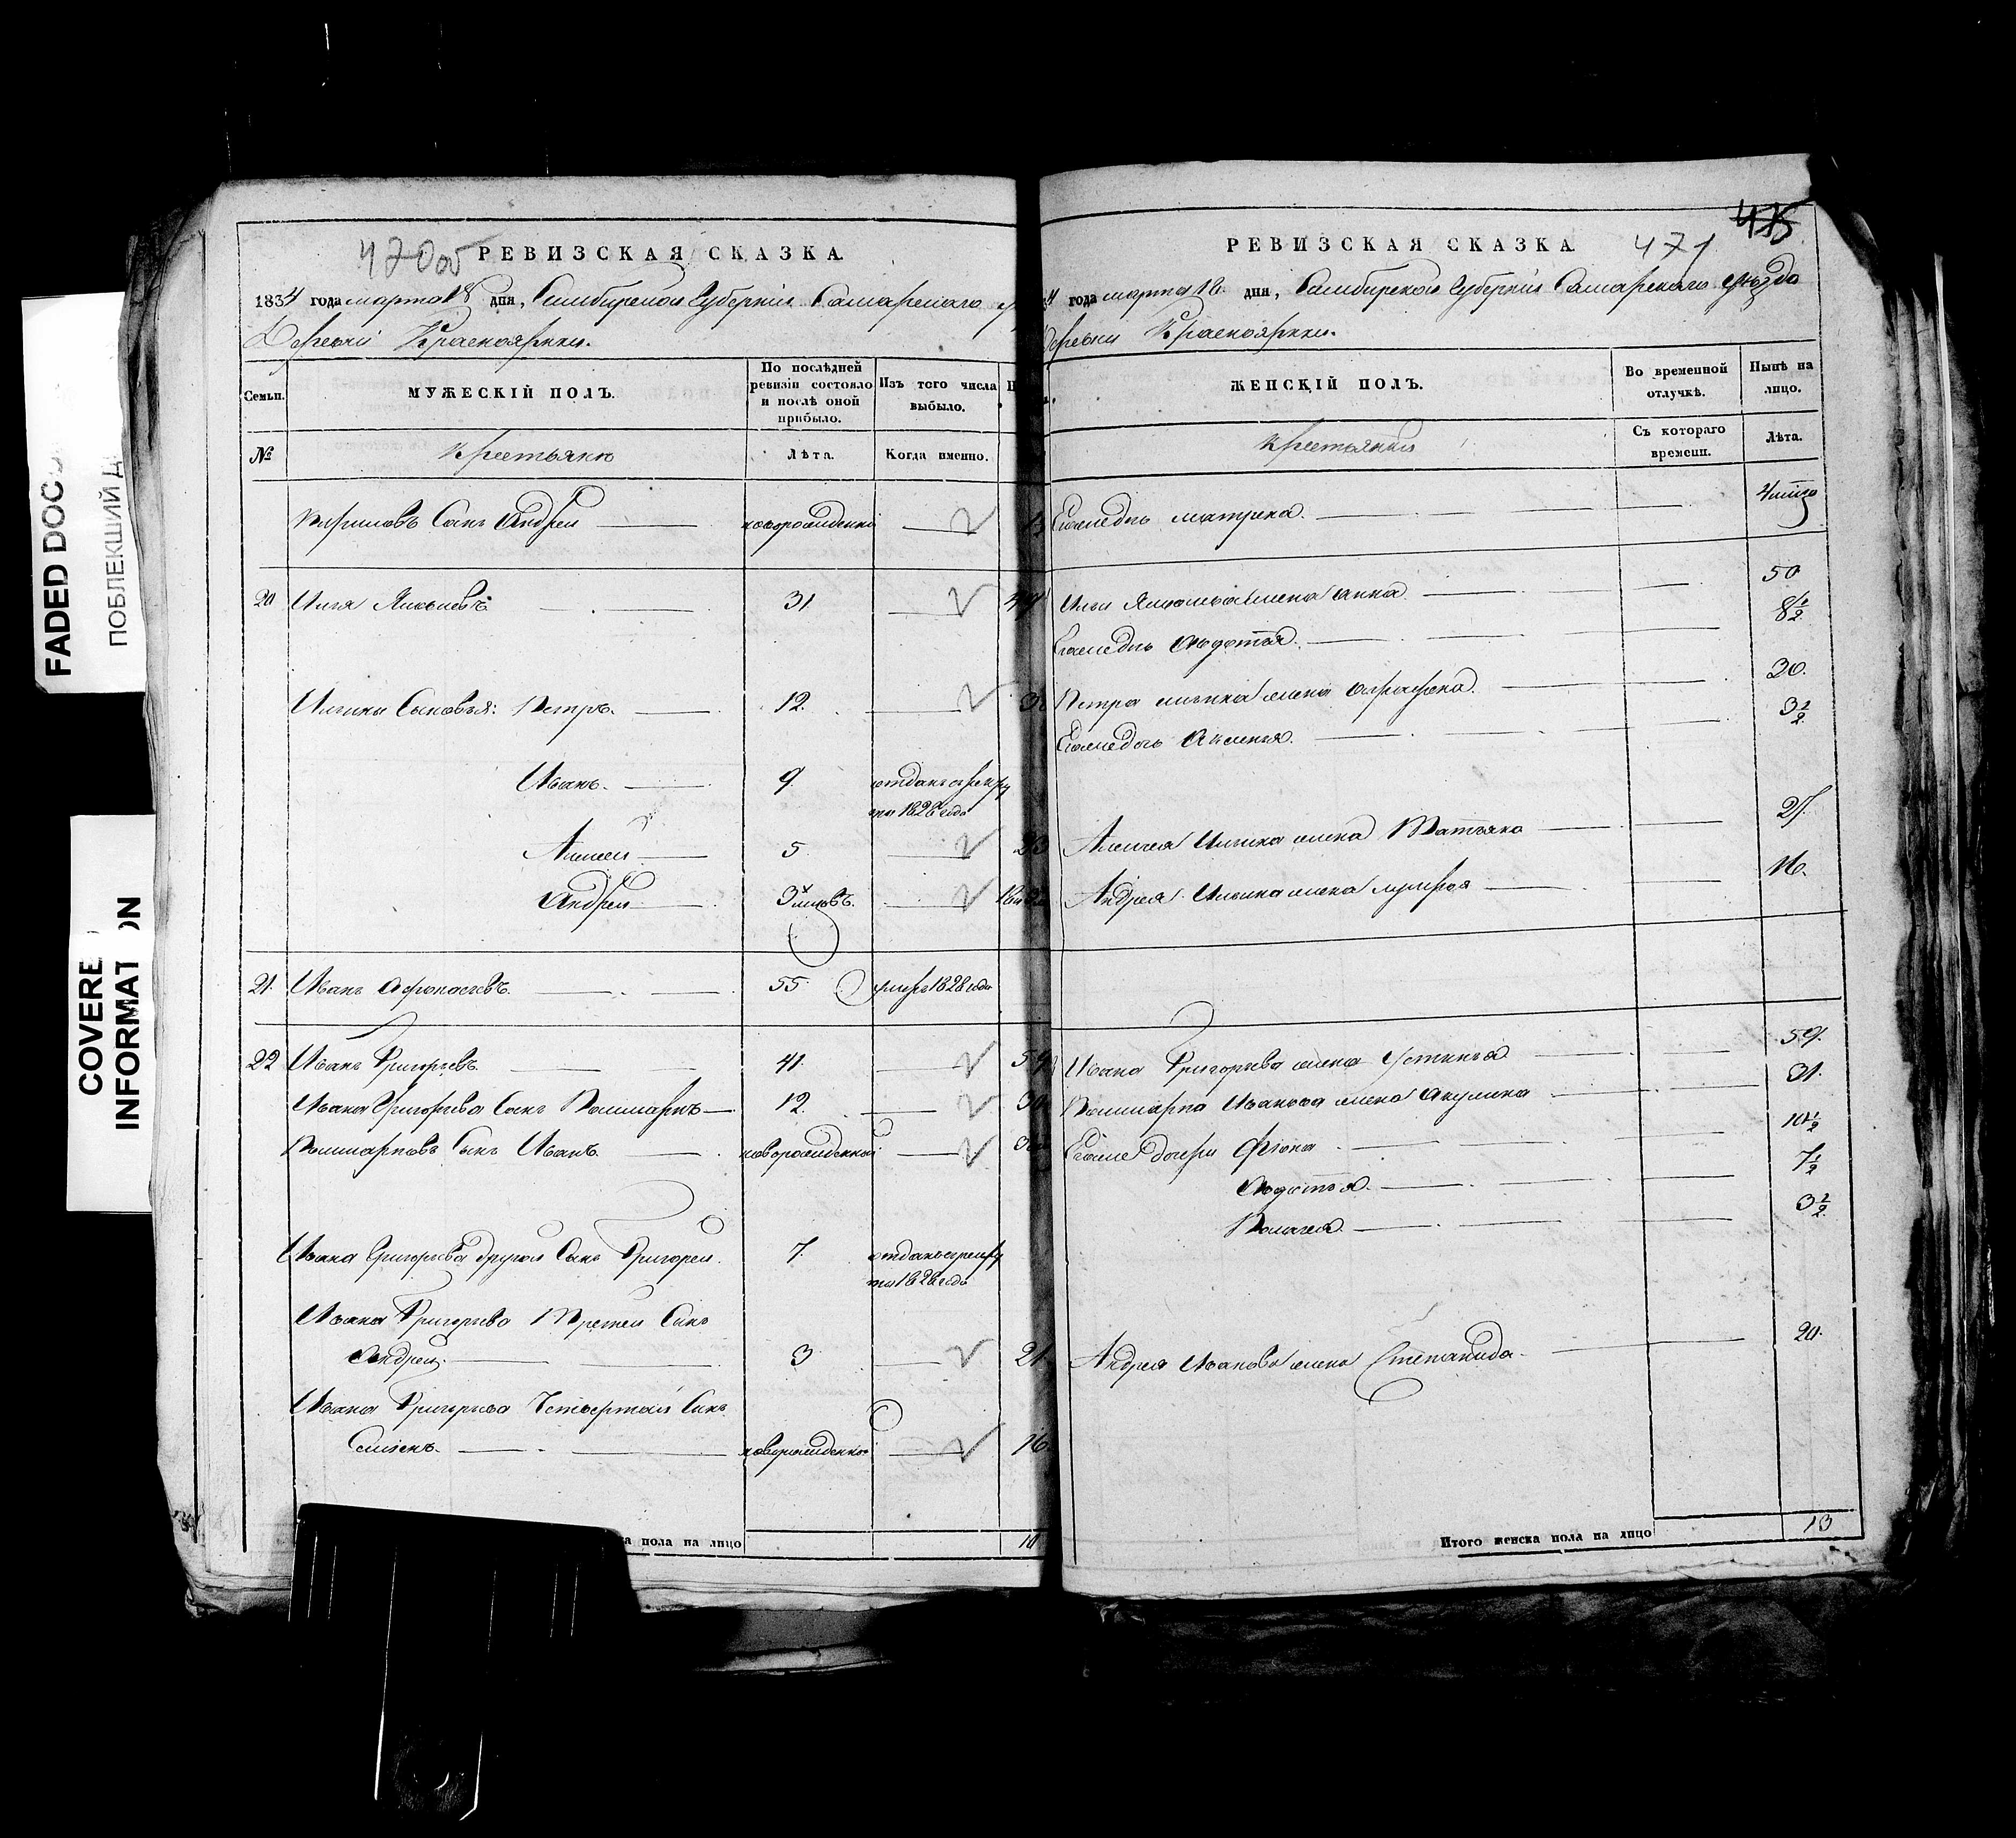 FADED DOC
ПОБЛЕКШИЙ Д
COVERE
INFORMAT ON
470об
РЕВИЗСКАЯ СКАЗКА
1834 года марта 18 дня, Симбирской Губернии Самарского
Деревни Красноярки.
Семьи.
МУЖЕСКІЙ ПОЛЪ.
По послѣдней ревизіи состояло и послѣ оной прибыло.
Изъ того числа выбыло.
№
Крестьяне
Лѣта.
Когда именно.
Кириловъ Сынъ Андрей новорожденной
20 Илья Яковлевъ 31
Ильины Сыновья: Петръ. 12.
Иванъ. 9 отданъ в рекру
ты 1828 года
Алексей 5
Андрей 3х
21. Иванъ Афонасьевъ. 55 умеръ 1828 года
22 Иванъ Григорьевъ. 41.
Ивана Григорьева Сынъ 12.
Сынъ Иванъ новорожденной
Ивана Григорьева другой Сынъ Григорей. 7. отданъ в рекру
ты 1828 года
Ивана Григорьева Третей Сынъ
Андрей. 3 21
Ивана Григорьева Четвертой Сынъ
Семенъ. новорожденной 16.
а пола на лицо
471
РЕВИЗСКАЯ СКАЗКА
года марта 18 дня, Симбирской Губернии Самарского уезда
Деревни Красноярки.
ЖЕНСКІЙ ПОЛЪ.
Во временной отлучкѣ.
Нынѣ на лицо.
Крестьянки
Съ котораго времени.
Лѣта.
Егоже дочь матрена.
Ильи Яковлева жена анна. 50
Егоже дочь Авдотья. 8½
Петра ильина жена аграфена. 30.
Егоже дочь Аксинья. 3½
Алексея Ильина жена Татьяна
Андрея Ильина жена 16.
Ивана Григорьева жена Устинья 59.
Ивановa жена Акулина 31.
Егоже дочери 10½
Авдотья. 7½
Пелагея. 3½
Андрея Иванова жена Степанида. 20.
Итого женска пола на лицо 13